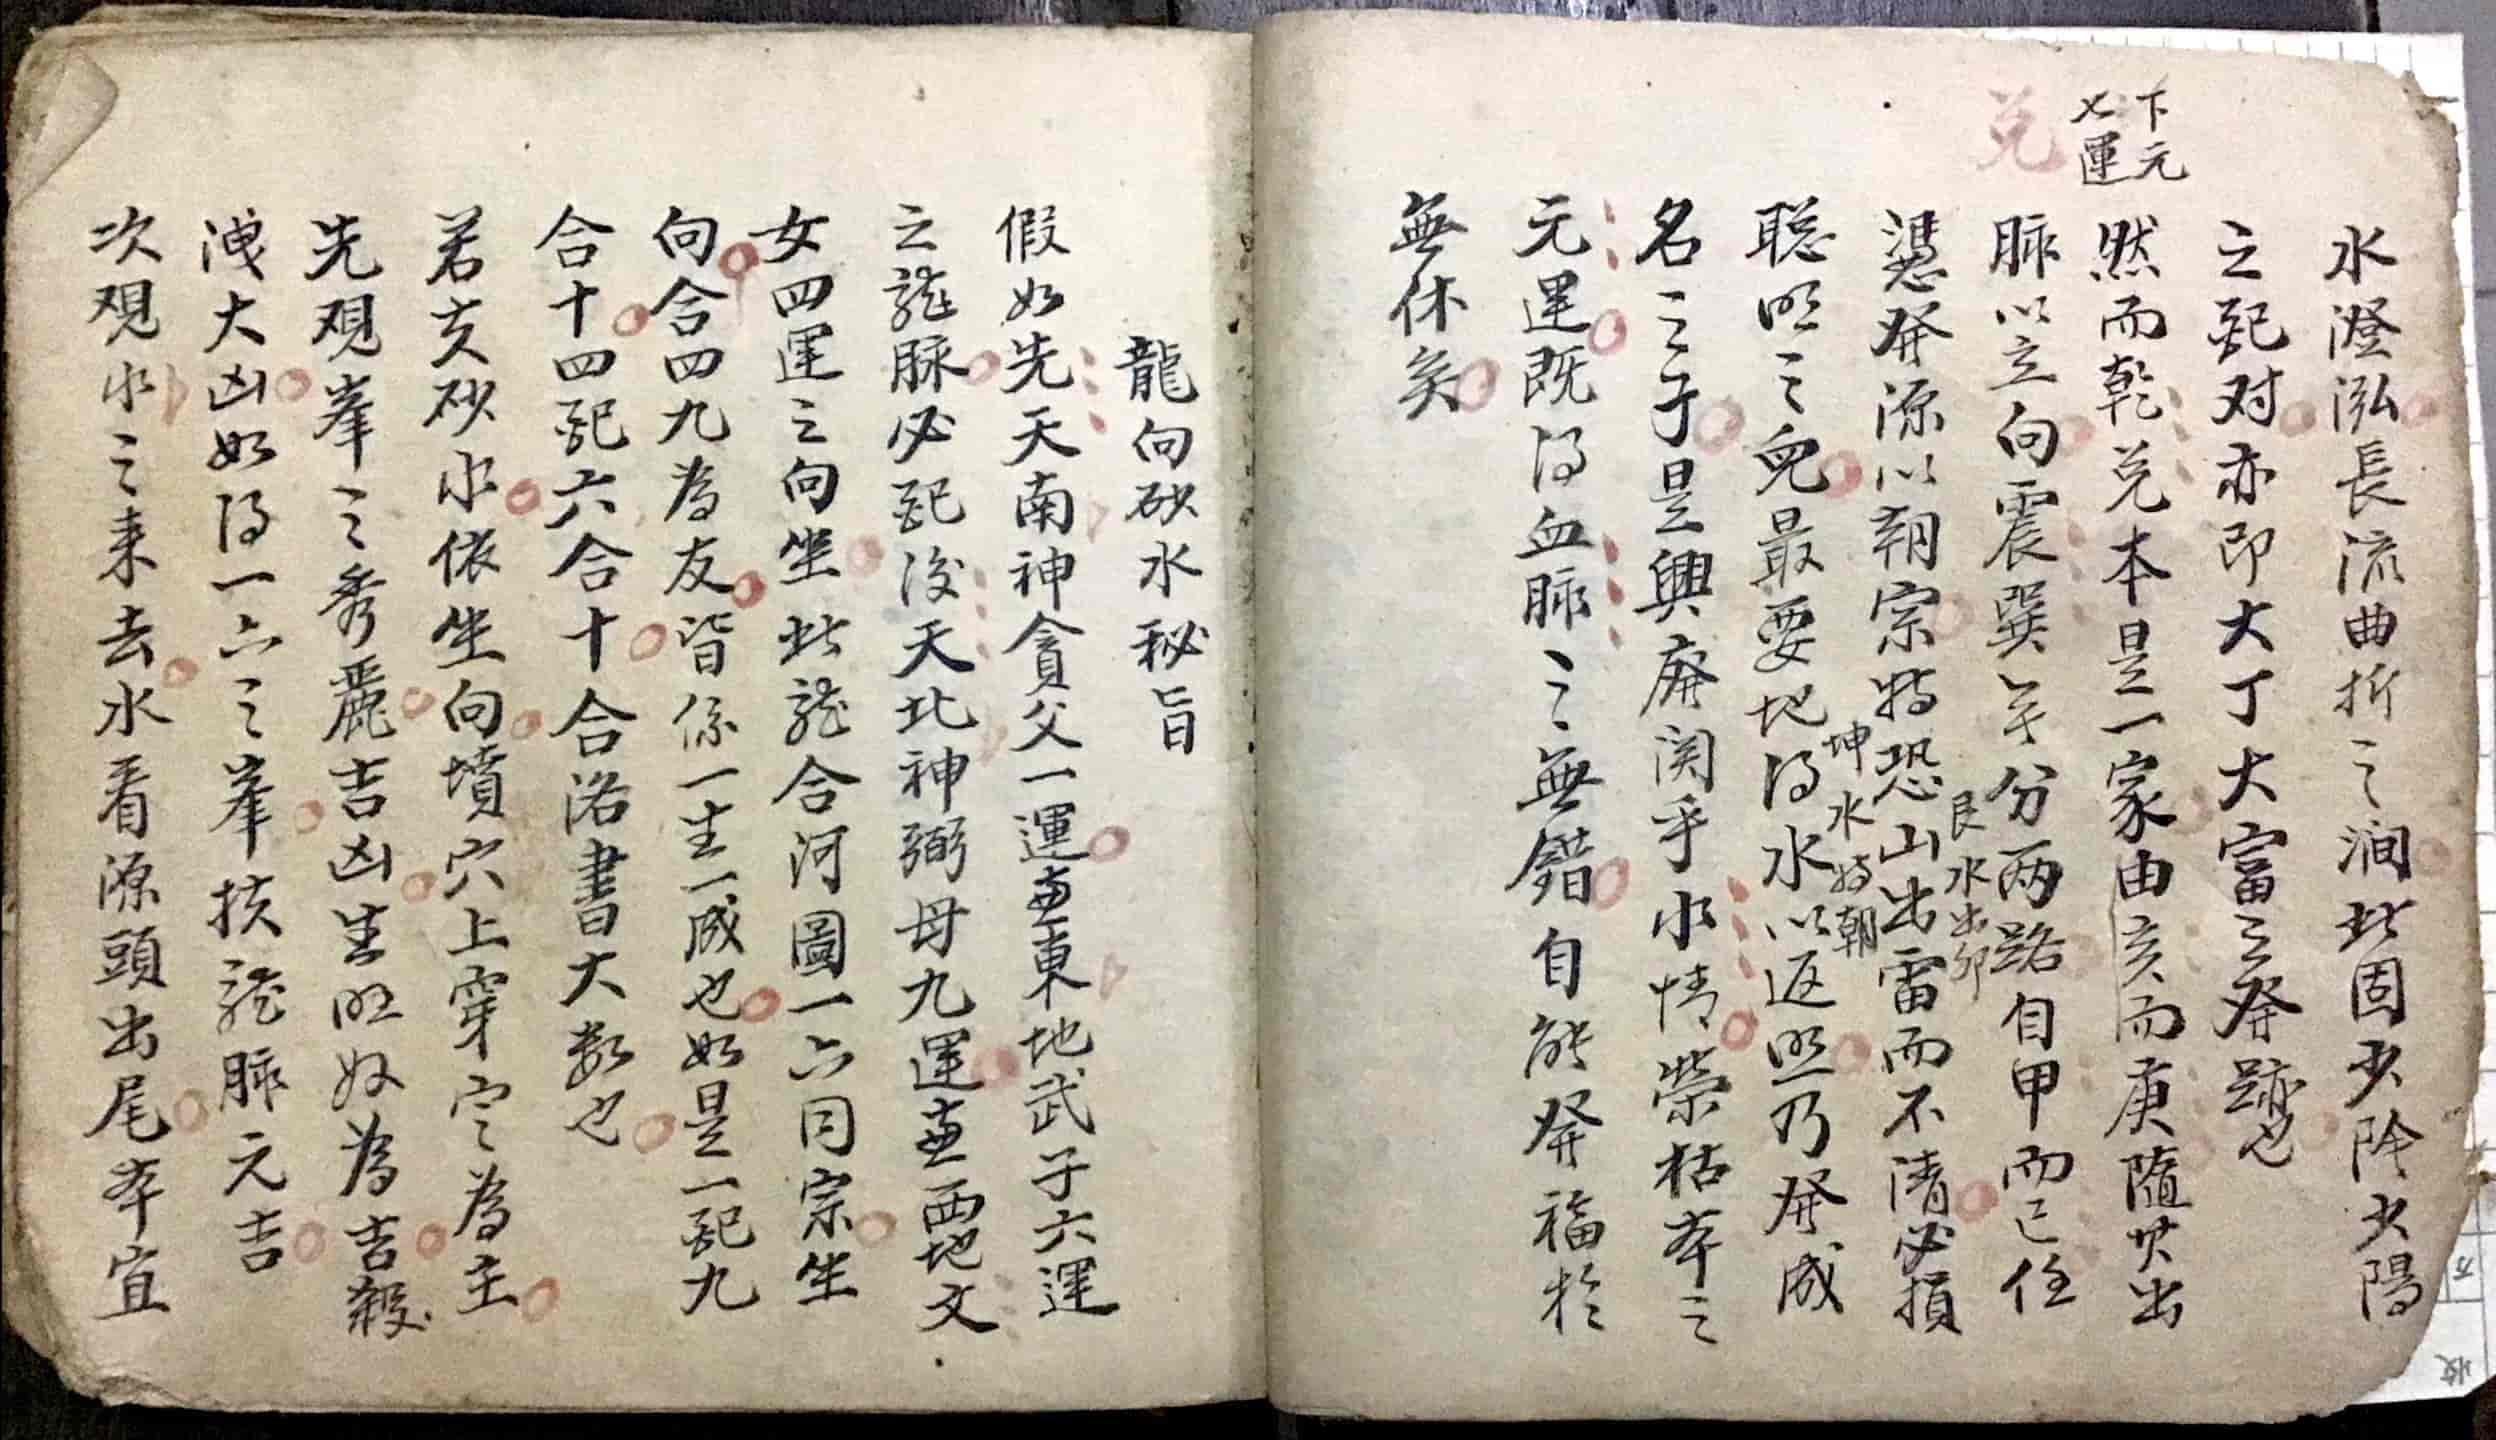 下元
七運
兑
水澄泓長流曲折之澗此固少阴少陽
之配对亦即大丁大富之発跡也
然而乾兑本是一家由亥而庚隨共出
脉以立向震巽年分两路自甲而已任
艮水出卯
憑発源以朝宗特恐山出雷而不清必損
坤水特朝
聡明之兒最要地得水以返照乃発成
名之子是興廃関乎水情荣枯本之
元運既得血脉之無錯自能発福於
無休矣
龍向砂水秘旨
假如先天南神貪父一運壶東地武子六運
之龍脉必配後天北神弼母九運壶西地文
女四運之向坐此龍合河圖一六同宗坐
向合四九為友皆係一生一成也如是一配九
合十四配六合十合洛書大数也
若亥砂水依坐向墳穴上穿定為主
先观峯之秀麗吉凶生旺奴為吉殺
洩大凶如得一六之峯扶龍脉元吉
次观水之来去水看源頭出尾本宜